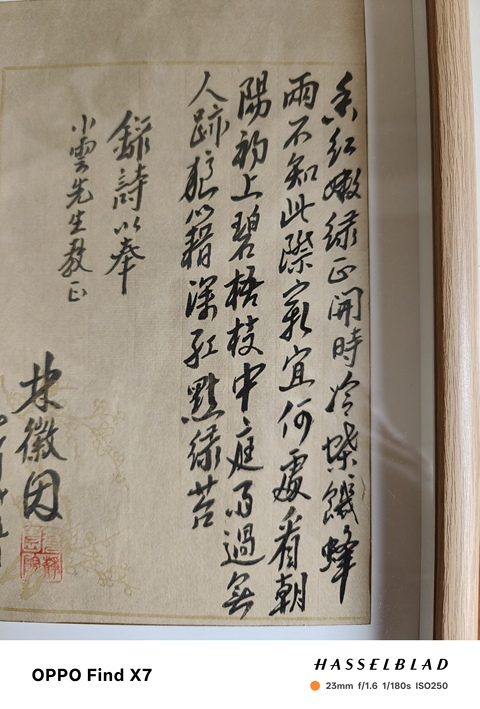 香紅嫩綠正開時冷蝶饑蜂
兩不知此際最宜何處看朝
陽初上碧梧枝中庭雨過無
人跡狼籍深紅點綠苔
錄詩以奉
小雲先生教正
林徽因
OPPO Find X7
HASSELBLAD
23mm f/1.6 1/180s ISO250